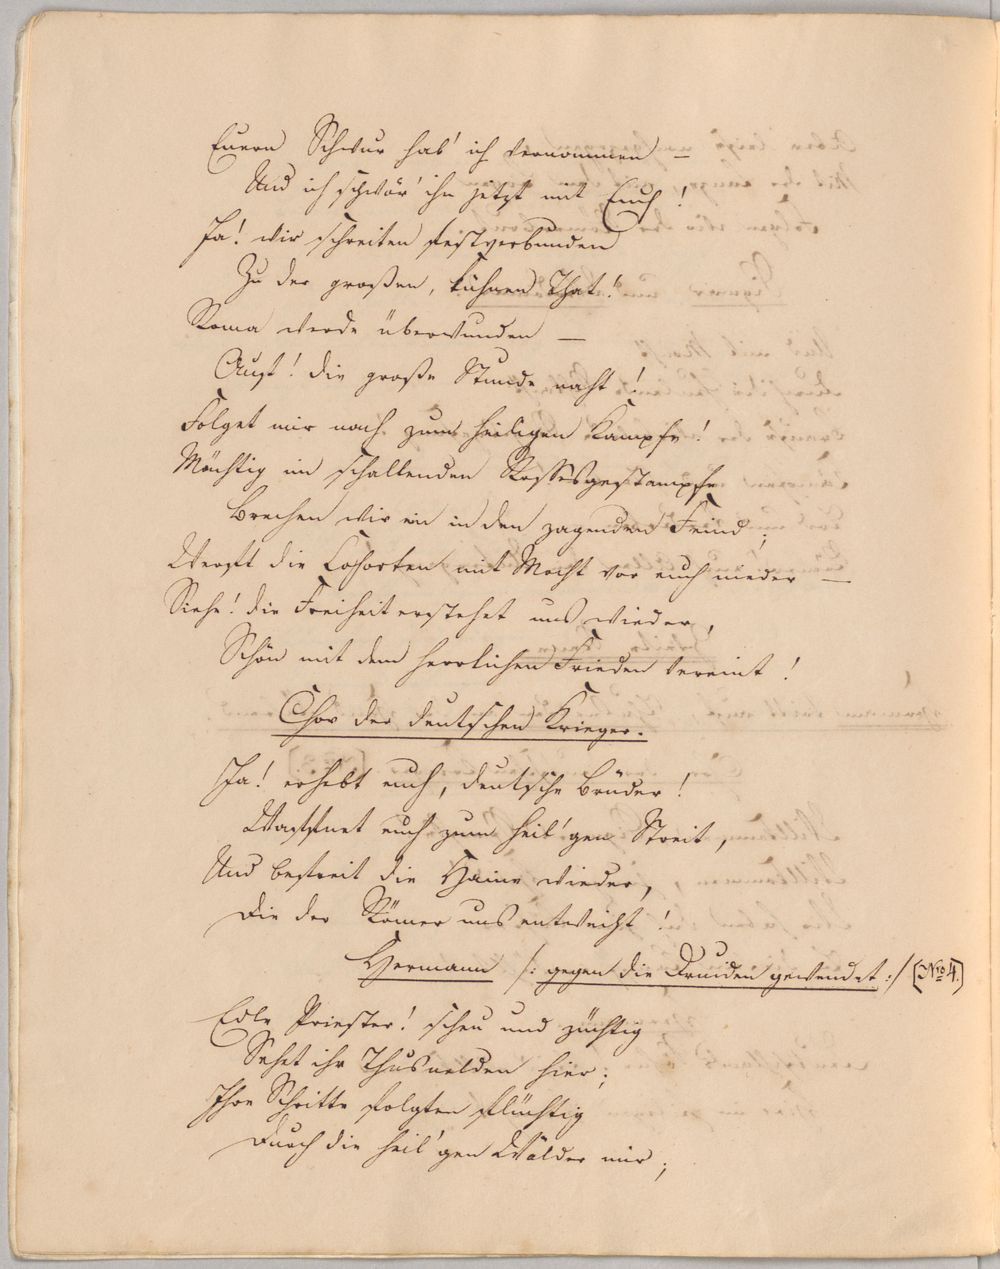 Euern Schwur hab' ich vernommen —
Und ich schwör' ihn jetzt mit Euch!
Ja! wir schreiten festverbunden
Zu der großen, kühnen That!
Roma werde überwunden —
Auf! die große Stunde naht!
Folget mir nach zum heiligen Kampfe!
Mächtig im schallenden Rossesgestampfe
Brechen wir ein in den zagenden Feind;
Werft die Cohorten mit Macht vor euch nieder —
Siehe! die Freiheit erstehet uns wieder,
Schön mit dem herrlichen Frieden vereint!
Chor der deutschen Krieger.
Ja! erhebt euch, deutsche Brüder!
Waffnet euch zum heil'gen Streit,
Und befreit die Haine wieder,
Die der Römer uns entweiht!
Hermann /: gegen die Druiden gewendet :/ [No 4.]
Edle Priester! scheu und züchtig
Sehet ihr Thusnelden hier;
Ihre Schritte folgten flüchtig
Durch die heil'gen Wälder mir;